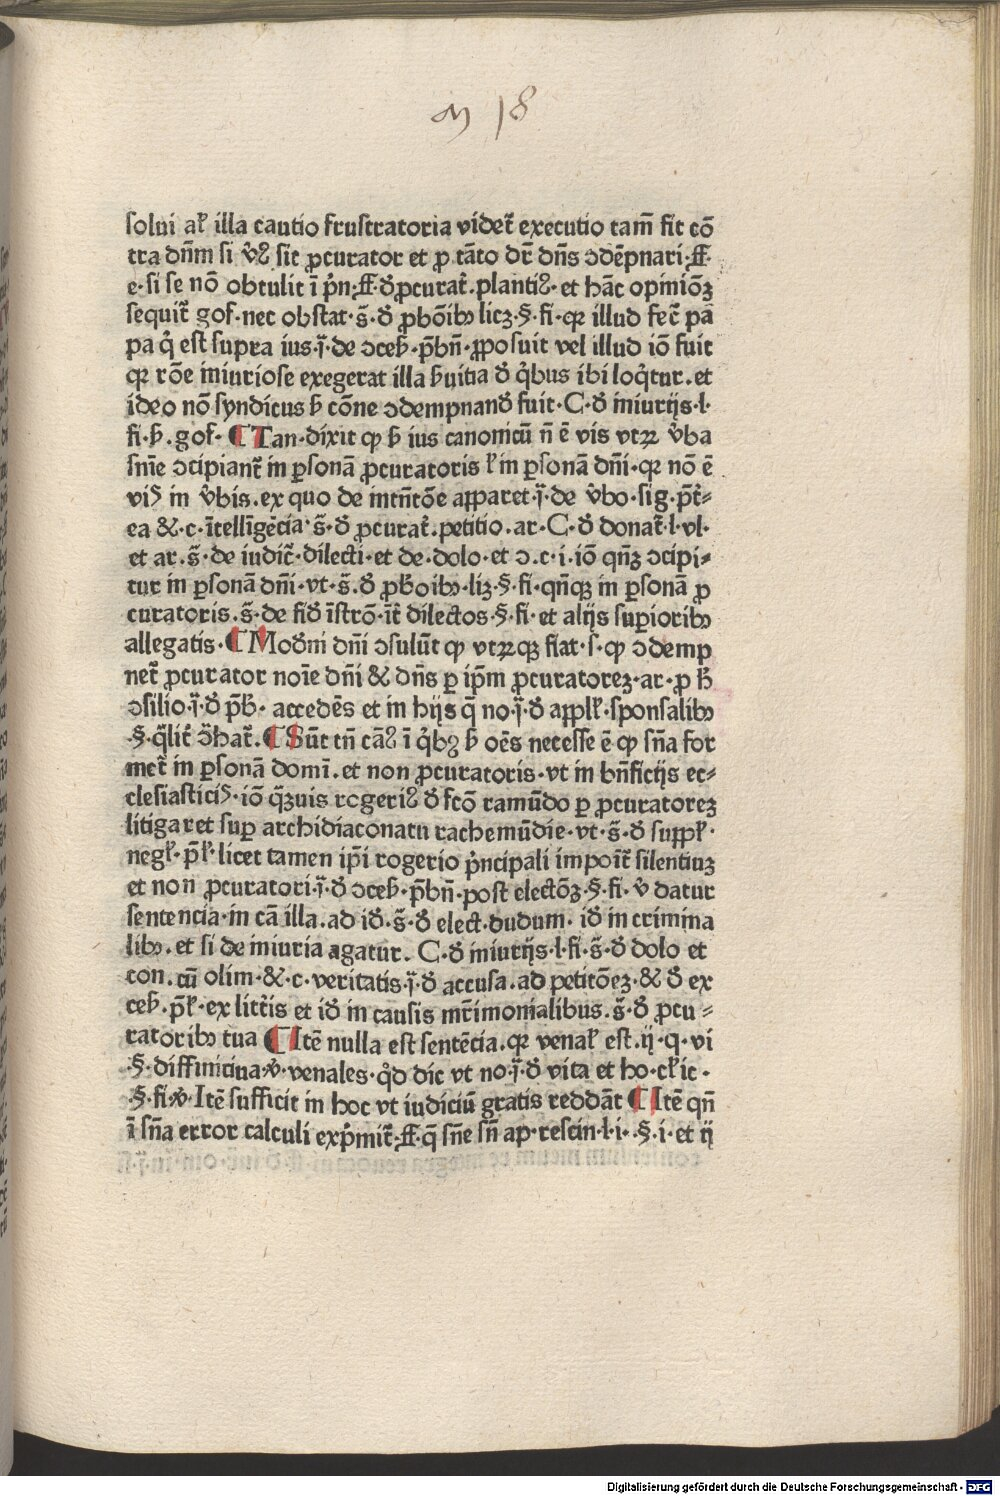 m 18
solui aƚ illa cautio frustratoria videt᷑ executio tam̄ fit cō
tra dn̄m si v̉ꝰ sit ꝓcurator et ꝓ tāto dr̄ dn̄s ↄdēpnari·ff·
e·si se nō obtulit ī p̄n·ff·ꝺ̉ ꝓcurat᷑.plantiꝰ·et hāc opiniōꝫ
sequit᷑ gof·nec obstat·s̄·ꝺ̉ ꝓbōibꝫ licꝫ·§·fi·qꝛ illud fec̄ pa
pa q̇ est supra ius·j̄·de ↄceƀ·p̄bn̄·ꝓposuit vel illud iō fuit
qꝛ rōe iniuriose exegerat illa ẜuitia ꝺ̉ q̇bus ibi loq̇tur.et
ideo nō syndicus ẜ cōne ↄdempnanꝺ̉ fuit·C·ꝺ̉ iniurijs·l·
fi·ẜ.gof· ¶ Tan·dixit ꝙ ẜ ius canonicū n̄ ē vis vtꝝ v̉ba
sn̄ie ↄcipiant᷑ in ꝑsonā ꝓcuratoris ƚ in ꝑsonā dn̄i·qꝛ nō ē
viꝰ in v̉bis.ex quo de intn̄tōe apparet·j̄·de v̉bo·sig·p̄t᷑⸗
ea &·c·ītelligēcia·s̄·ꝺ̉ ꝓcurat᷑.petitio.ar·C·ꝺ̉ donat᷑·l·vl·
et ar.s̄·de iudic᷑·dilecti·et de·dolo·et ↄ.c·i·iō qn̄ꝫ ↄcipi⸗
tur in ꝑsonā dn̄i·vt·s̄.ꝺ̉ ꝓƀoibꝫ·liꝫ·§·fi·qn̄qꝫ in ꝑsonā ꝓ
curatoris.s̄·de fiꝺ̉ īstrō·it᷑ dilectos·§·fi·et alijs suꝑioribꝫ
allegatis·¶ Moꝺ̉ni dn̄i ↄsulūt ꝙ vtꝝqꝫ fiat·s·ꝙ ↄdemp
net᷑ ꝓcurator noīe dn̄i & dn̄s ꝑ ip̄m ꝓcuratoreꝫ·ar·ꝓ ħ
ↄsilio·j̄·ꝺ̉ p̄ƀ· accedēs et in hijs q̄ no·j̄·ꝺ̉ applƚ·sponsalibꝫ
·§·q̇lit᷑ ↄ̄hat᷑.¶ Sūt tn̄ cāꝰ ī q̇bꝫ ẜ oēs necesse ē ꝙ sn̄a for
met᷑ in ꝑsonā domī.et non ꝓcuratoris·vt in bn̄ficijs ec⸗
clesiasticiꝰ·iō q̄ꝫuis rogeriꝰ ꝺ̉ fcō ramūdo ꝑ ꝓcuratoreꝫ
litigaret suꝑ archidiaconatu rachemūdie·vt·s̄·ꝺ̉ supplƚ·
negƚ·p̄ƚ·licet tamen ip̄i rogerio p̉ncipali impoīt᷑ silentiuꝫ
et non ꝓcuratori·j̄·ꝺ̉ ↄceƀ·p̄bn̄·post electōꝫ·§·fi·v̉ datur
sentencia·in cā illa.ad iꝺ̉.s̄·ꝺ̉ elect·dudum·iꝺ̉ in crimina
libꝫ.et si de iniuria agatur. C·ꝺ̉ iniurijs·l·fi·s̄·ꝺ̉ dolo et
con.cū olim·&·c·veritatis·j̄·ꝺ̉ accusa.ad petitōeꝫ·& ꝺ̉ ex
ceƀ·p̄ƚ·ex litt᷑is et iꝺ̉ in causis mr̄imonialibus.s̄·ꝺ̉ ꝓcu⸗
ratoribꝫ tua ¶ Itē nulla est sentēcia.qꝛ venaƚ est.ij·q·vi
·§·diffinitiua·v̉·venales·q̇d dic vt no·j̄·ꝺ̉ vita et ho·cƚic·
·§·fi·v̉·Itē sufficit in hoc vt iudiciū gratis reddāt ¶ Itē qn̄
ī sn̄a error calculi exp̉mit᷑·ff·q̄ sn̄e sn̄ ap·rescin·l·i··§·i·et ij
Digitalisierung gefördert durch die Deutsche Forschungsgemeinschaft - DFG